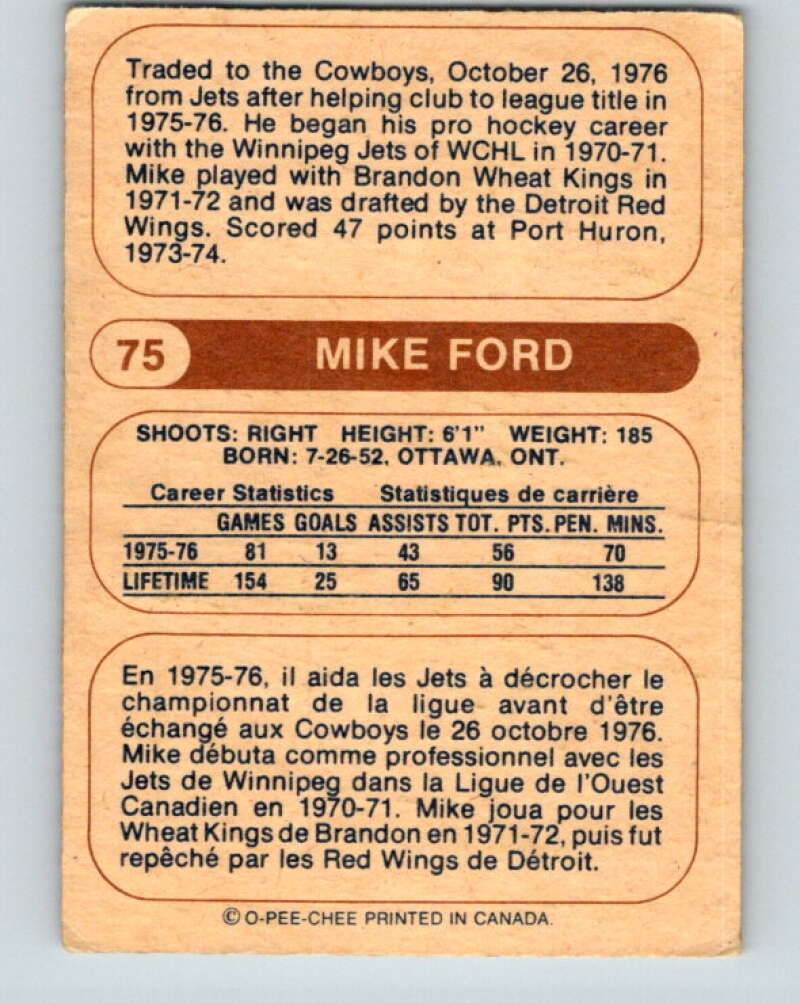 Traded to the Cowboys, October 26, 1976
from Jets after helping club to league title in
1975-76. He began his pro hockey career
with the Winnipeg Jets of WCHL in 1970-71.
Mike played with Brandon Wheat Kings in
1971-72 and was drafted by the Detroit Red
Wings. Scored 47 points at Port Huron,
1973-74.
75 MIKE FORD
SHOOTS: RIGHT HEIGHT: 6'1" WEIGHT: 185
BORN: 7-26-52, OTTAWA, ONT.
Career Statistics Statistiques de carrière
GAMES GOALS ASSISTS TOT. PTS. PEN. MINS.
1975-76 81 13 43 56 70
LIFETIME 154 25 65 90 138
En 1975-76, il aida les Jets à décrocher le
championnat de la ligue avant d'être
échangé aux Cowboys le 26 octobre 1976.
Mike débuta comme professionnel avec les
Jets de Winnipeg dans la Ligue de l'Ouest
Canadien en 1970-71. Mike joua pour les
Wheat Kings de Brandon en 1971-72, puis fut
repêché par les Red Wings de Détroit.
© O-PEE-CHEE PRINTED IN CANADA.